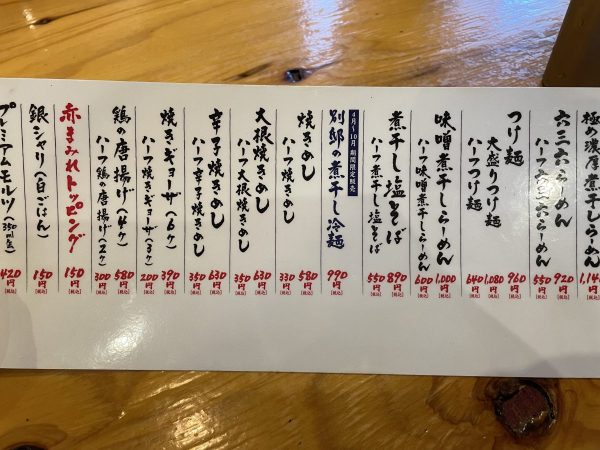 極め濃厚煮干しらーめん
六三六らーめん 920円(税込)
ハーフ六三六らーめん 550円(税込)
つけ麺 960円(税込)
大盛りつけ麺 1,080円(税込)
ハーフつけ麺 640円(税込)
味噌煮干しらーめん 1,000円(税込)
ハーフ味噌煮干しらーめん 600円(税込)
煮干し塩そば 890円(税込)
ハーフ煮干し塩そば 550円(税込)
4月〜10月 期間限定販売
別邸の煮干し冷麺 990円(税込)
焼きめし 580円(税込)
ハーフ焼きめし 330円(税込)
大根焼きめし 630円(税込)
ハーフ大根焼きめし 350円(税込)
辛子焼きめし 630円(税込)
ハーフ辛子焼きめし 350円(税込)
焼きギョーザ(6ヶ) 390円(税込)
ハーフ焼きギョーザ(3ヶ) 200円(税込)
鶏の唐揚げ(4ヶ) 580円(税込)
ハーフ鶏の唐揚げ(2ヶ) 300円(税込)
赤まみれトッピング 150円(税込)
銀シャリ(白ごはん) 150円(税込)
プレミアムモルツ(350ml缶) 420円(税込)